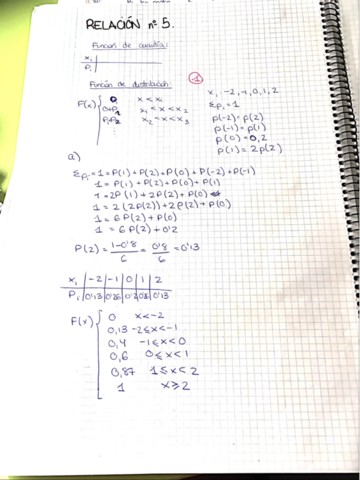 RELACIÓN nº 5.
Función de cuantía:
xi
Pi
Función de distribución:
F(x) { 0 x < x1
0+P1 x1 < x < x2
P1+P2 x2 < x < x3
1
xi -2, -1, 0, 1, 2
ΣPi = 1
P(-2) = P(2)
P(-1) = P(1)
P(0) = 0,2
P(1) = 2P(2)
a)
ΣPi = 1 = P(1) + P(2) + P(0) + P(-2) + P(-1)
1 = P(1) + P(2) + P(0) + P(1)
1 = 2P(1) + 2P(2) + P(0)
1 = 2(2P(2)) + 2P(2) + P(0)
1 = 6P(2) + P(0)
1 = 6P(2) + 0'2
P(2) = 1-0'8 / 6 = 0'8 / 6 = 0'13
xi | -2 | -1 | 0 | 1 | 2
Pi | 0'13 | 0'26 | 0'2 | 0'26 | 0'13
F(x) { 0 x < -2
0,13 -2 ≤ x < -1
0,4 -1 ≤ x < 0
0,6 0 ≤ x < 1
0,87 1 ≤ x < 2
1 x ≥ 2